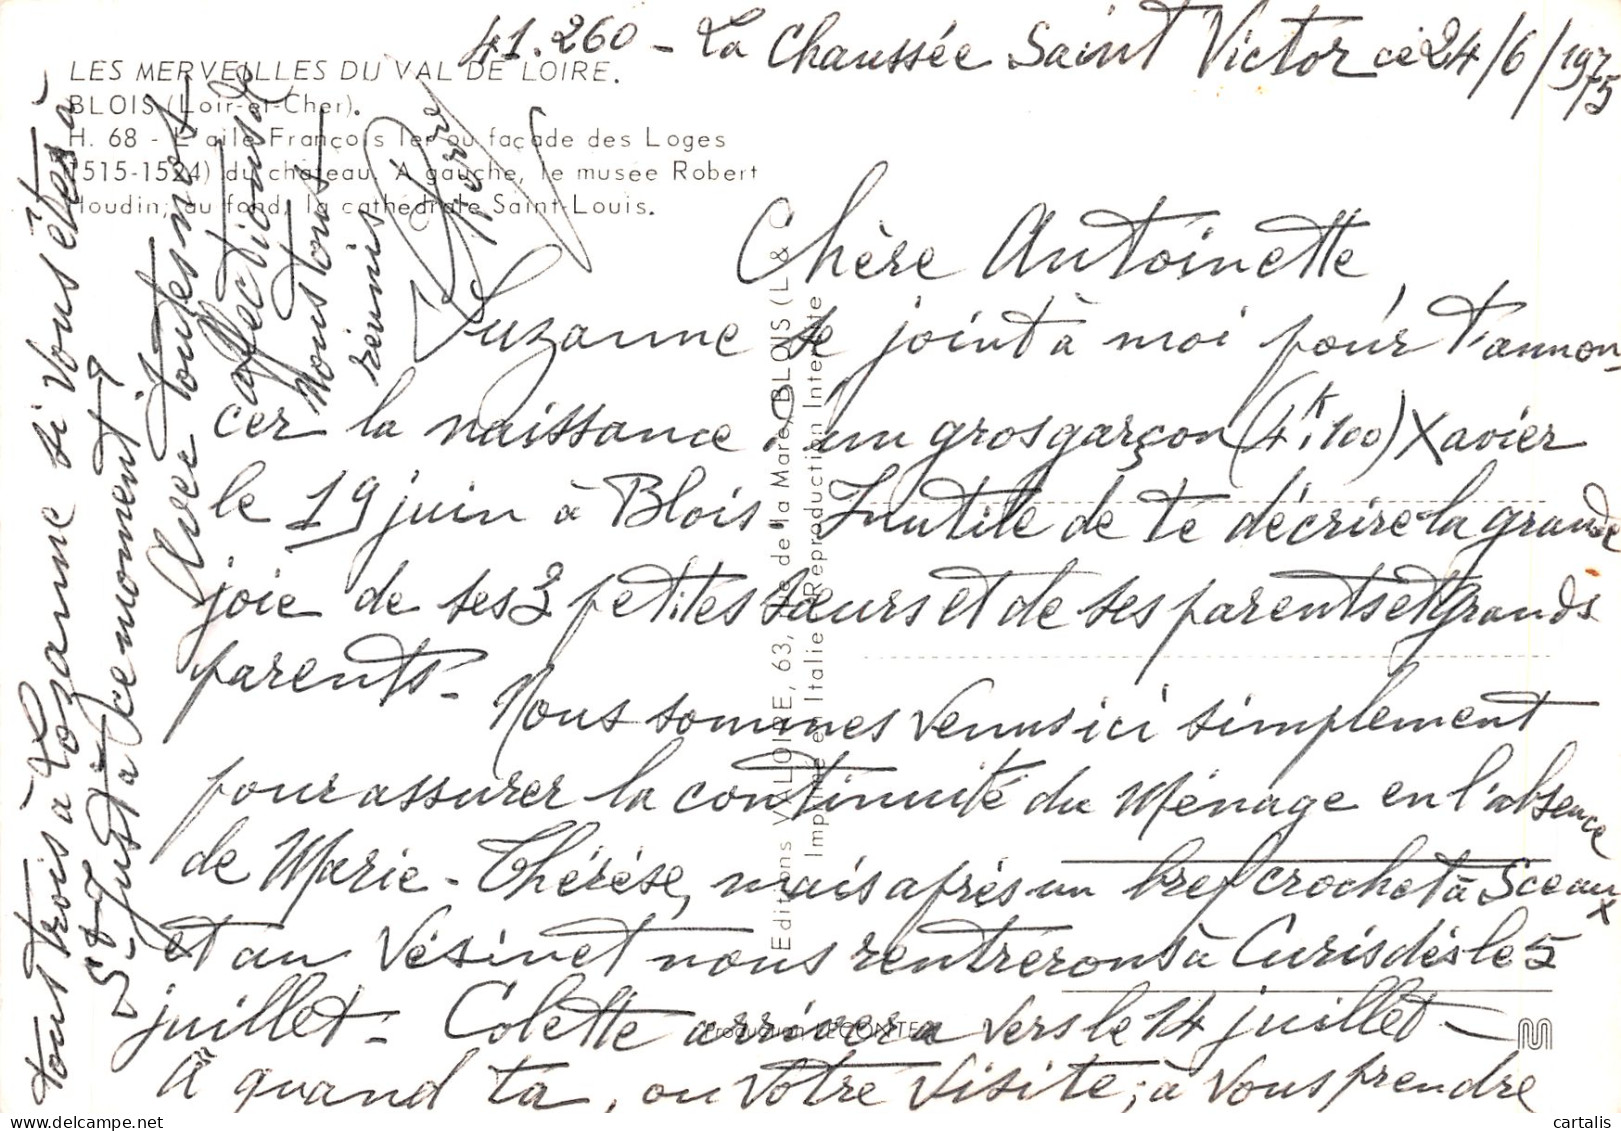 41.260 - La Chaussée Saint Victor ce 24/6/1975
LES MERVEILLES DU VAL DE LOIRE.
BLOIS (Loir-et-Cher).
H. 68 - L'aile François Ier ou façade des Loges
(1515-1524) du château. A gauche, le musée Robert
Houdin; au fond, la cathédrale Saint-Louis.
Chère Antoinette,
Suzanne se joint à moi pour t'annon-
cer la naissance d'un gros garçon (4k,100) Xavier
le 19 juin à Blois - Inutile de te décrire la grande
joie de ses 3 petites sœurs et de ses parents et grands
parents -
Nous sommes venus ici simplement
pour assurer la continuité du Ménage en l'absence
de Marie-Thérèse, mais après un bref crochet à Sceaux
et au Vésinet nous rentrerons à Curis dès le 5
juillet - Colette arrivera vers le 14 juillet -
À quand ta, ou votre visite; à vous prendre
tous trois à Lozanne si vous êtes à
St Just à ce moment?
Avec toutes nos
affections de
nous tous
réunis
Pierre
Editions VALOIRE, 63, de la Mare, BLOIS (L. & C.)
Imprimé en Italie Reproduction Interdite
Production LECONTE